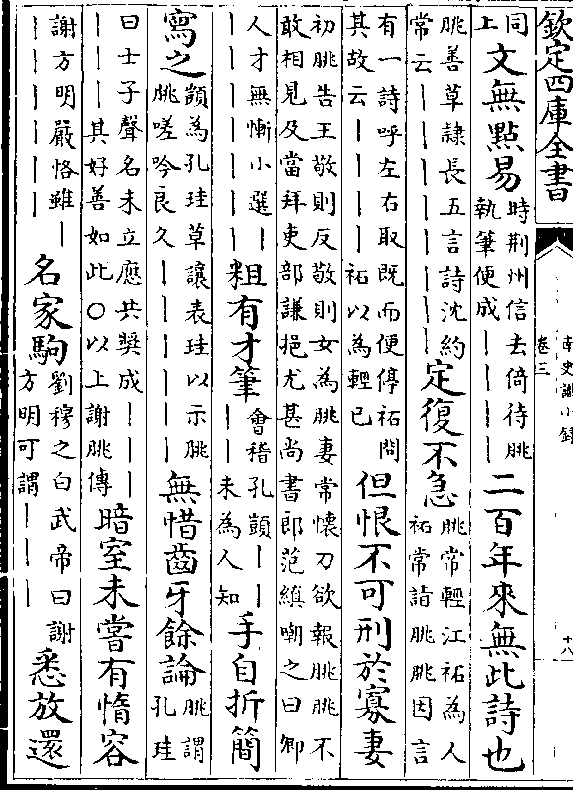 欽定四庫全書
南史識小錄
卷三
十八
同
上
文無點易
時荆州信去倚待朓
執筆便成｜｜｜｜
二百年來無此詩也
朓善草隸長五言詩沈約
常云｜｜｜｜｜｜｜｜
定復不急
朓常輕江祏為人
祏常詣朓朓因言
有一詩呼左右取既而便停祏問
其故云｜｜｜｜祏以為輕已
但恨不可刑於寡妻
初朓告王敬則反敬則女為朓妻常懷刀欲報朓朓不
敢相見及當拜吏部謙挹尤甚尚書郎范縝嘲之曰卿
人才無慚小選｜
｜｜｜｜｜｜｜
粗有才筆
會稽孔顗｜｜
｜｜未為人知
手自折簡
寫之
顗為孔珪草讓表珪以示朓
朓嗟吟良久｜｜｜｜｜｜
無惜齒牙餘論
朓謂
孔珪
曰士子聲名未立應共奬成｜｜
｜｜｜｜其好善如此○以上謝朓傳
暗室未嘗有惰容
謝方明嚴恪雖｜
｜｜｜｜｜｜
名家駒
劉穆之白武帝曰謝
方明可謂｜｜｜
悉放還